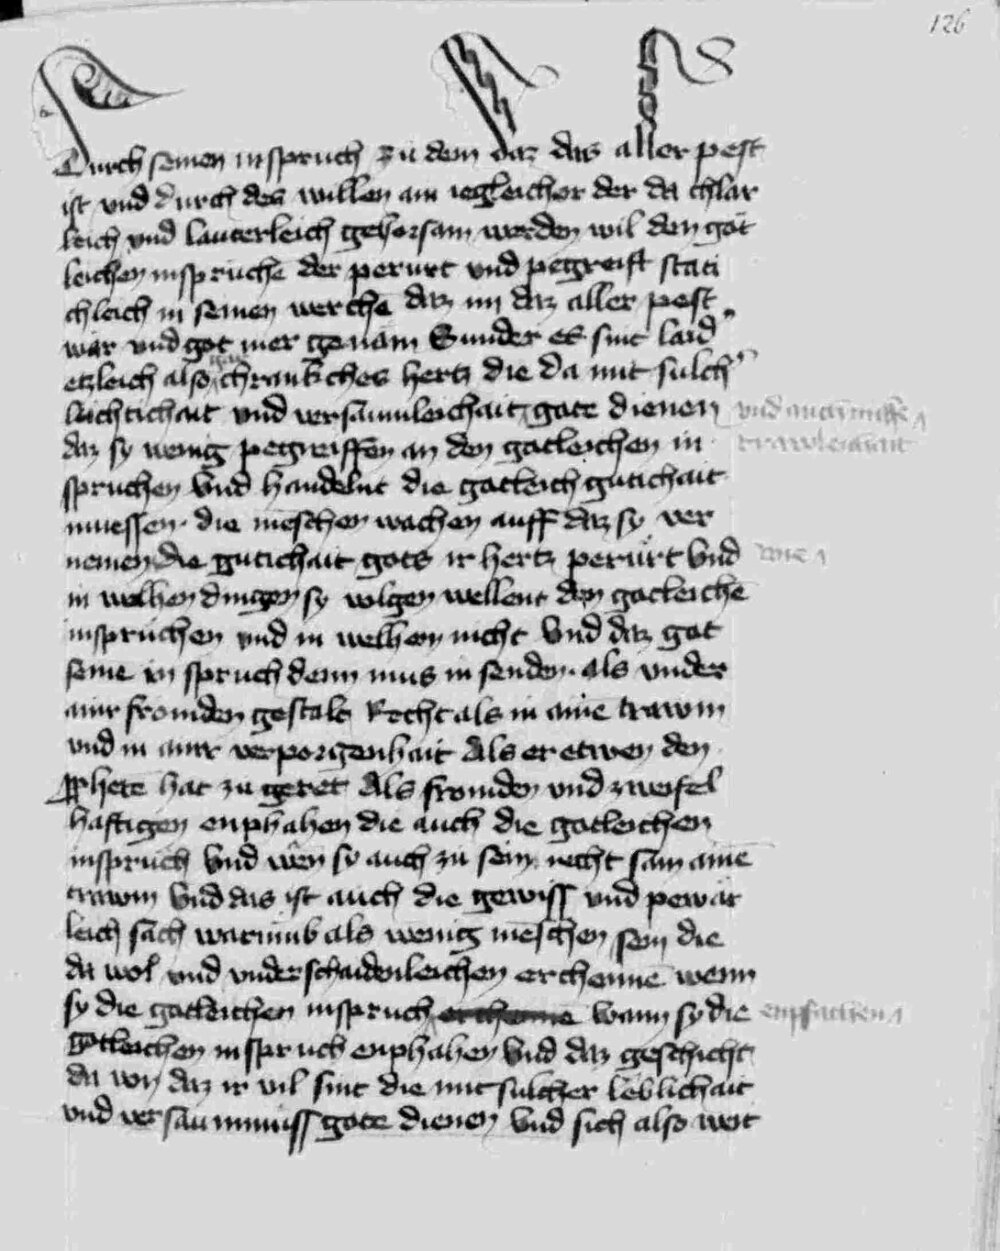 126
Durch seinen inspruch zu dem daz das aller pest
ist vnd durch des willen ain iegleicher der da chlar
leich vnd lauterleich gehorsam werden wil den got
leichen inspruchē der perurt vnd pegreift stati
chleich in seinen werchē daz im daz aller pest
wär vnd got mer genäm Sunder es sint laid
etzleich also chrankches hertz die da mit sulch
leichtichait vnd versäumleichait gote dienen vnd auch
daz sy wenig pegreiffen an den gotleichen in
spruchen Vnd handelnt die gotleich gutichait
muessen die mēschen wachen auff daz sy ver
nemen die gutichait gots ir hertz perürt Vnd wie
in welhen dingen sy volgen wellent den gotleichē
inspruchen vnd in welhen nicht Vnd daz got
seine in spruch denn mus in senden als vnder
ainr fromden gestalt Recht als in ainē trawm
vnd in ainr verporgenhait Als er etwen den
ꝓphetē hat zu geret Als fromden vnd zweifel
haftigen enphahen die auch die gotleichen
inspruch Vnd wēn sy auch zu sein recht sam ainē
trawm Vnd das ist auch die gewiss vnd pewär
leich sach warumb als wenig mēschen sein die
da wol vnd vnderschaidenleichen erchennē wenn
sy die gotleichen inspruch erchennē wann sy die enpfachen
gotleichen inspruch enphahen Vnd daz geschicht
da von daz ir vil sint die mit sulcher leblichait
vnd versaumnuss gote dienen Vnd sich also weit